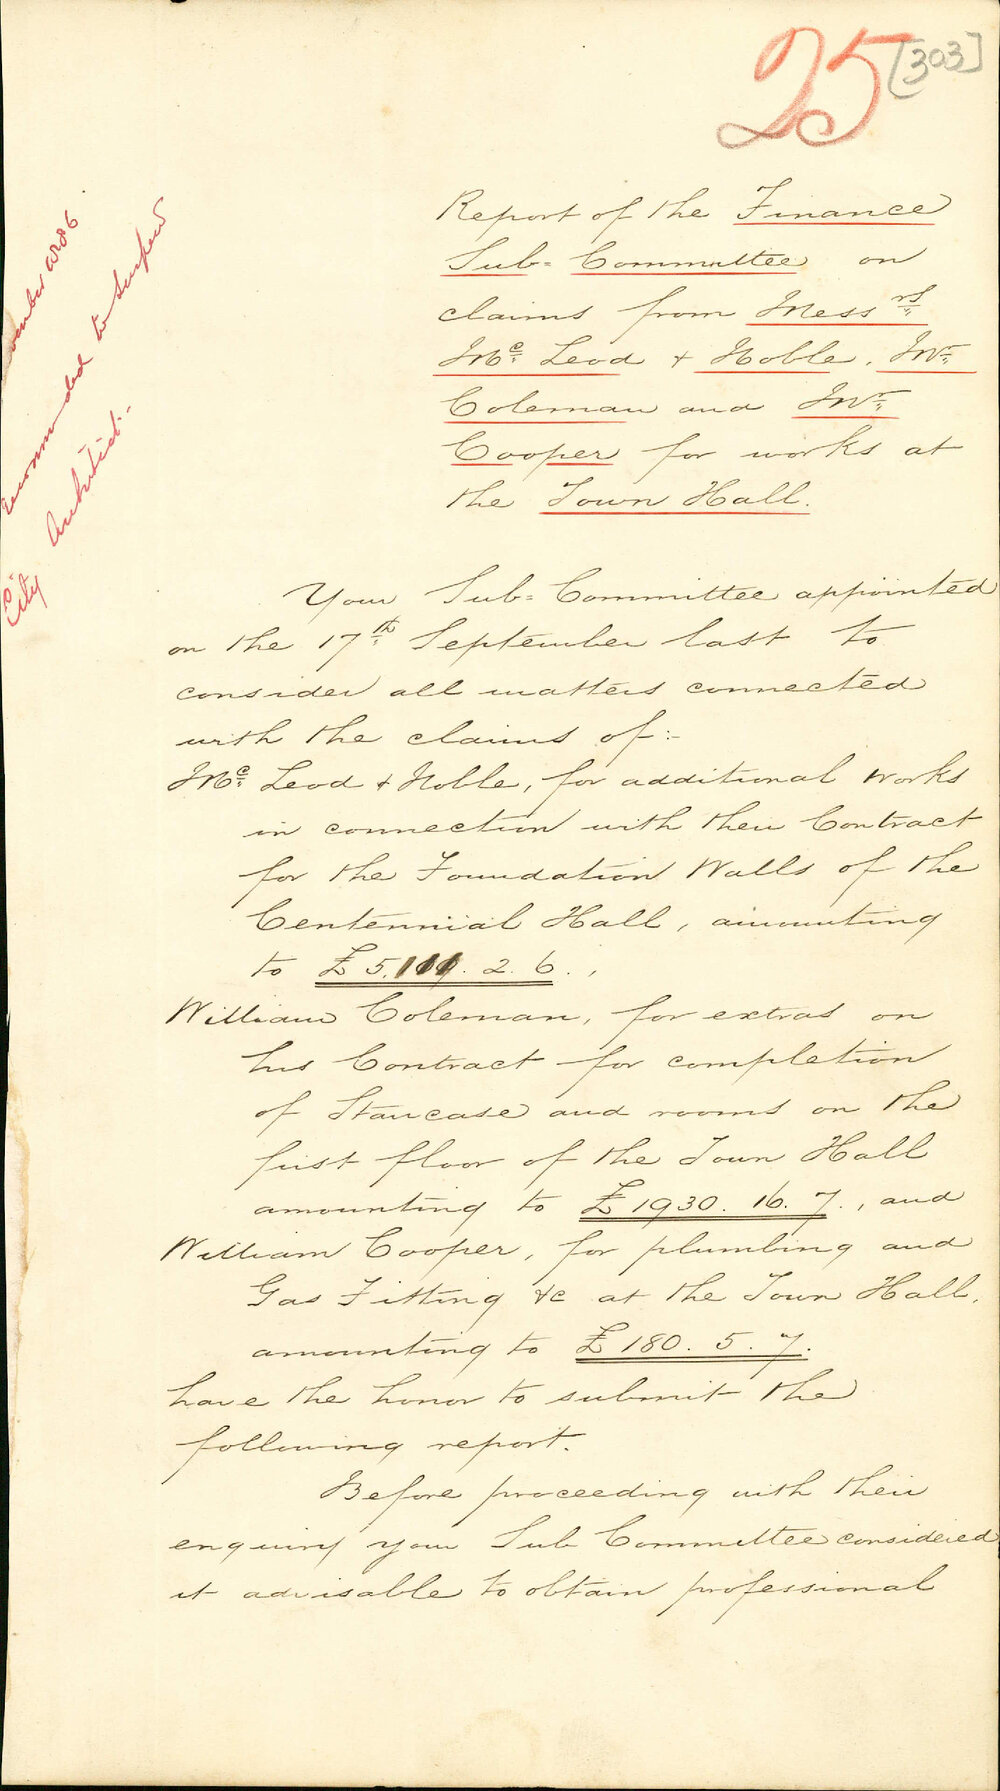 25 [303]
Report of the Finance
Sub= Committee on
claims from Messrs
Mc Leod & Noble, Mr
Coleman and Mr
Cooper for works at
the Town Hall.
recommended to suspend
City Architect.
Your Sub= Committee appointed
on the 17th September last to
consider all matters connected
with the claims of:-
Mc Leod & Noble, for additional works
in connection with their Contract
for the Foundation Walls of the
Centennial Hall, amounting
to £5. . 2. 6.,
William Coleman, for extras on
his Contract for completion
of Staircase and rooms on the
first floor of the Town Hall
amounting to £1930. 16. 7., and
William Cooper, for plumbing and
Gas Fitting &c at the Town Hall,
amounting to £180. 5. 7.
have the honor to submit the
following report.
Before proceeding with their
enquiry your Sub Committee considered
it advisable to obtain professional